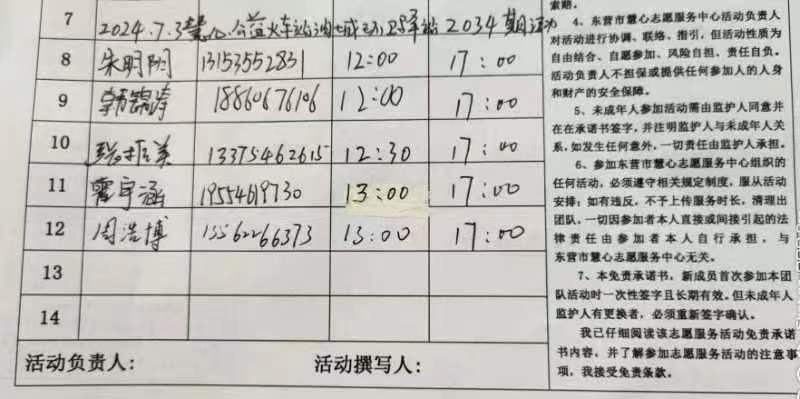 7 2024.7.3慧心公益火车站 2034期活动
8 朱明阳 13153552831 12:00 17:00
9 韩锦涛 18860676106 12:00 17:00
10 13375462615 12:30 17:00
11 霍宇涵 19554619730 13:00 17:00
12 周浩博 13562266373 13:00 17:00
13
14
活动负责人： 活动撰写人：
索赔。
4、东营市慧心志愿服务中心活动负责人
对活动进行协调、联络、指引，但活动性质为
自由结合、自愿参加、风险自担、责任自负。
活动负责人不担保或提供任何参加人的人身
和财产的安全保障。
5、未成年人参加活动需由监护人同意并
在在承诺书签字，并注明监护人与未成年人关
系，如发生任何意外，一切责任由监护人承担。
6、参加东营市慧心志愿服务中心组织的
任何活动，必须遵守相关规定制度，服从活动
安排；如有违反，不予上传服务时长，清理出
团队，一切因参加者本人直接或间接引起的法
律责任由参加者本人自行承担，与
东营市慧心志愿服务中心无关。
7、本免责承诺书，新成员首次参加本团
队活动时一次性签字且长期有效。但未成年人
监护人有更换者，必须重新签字确认。
我已仔细阅读该志愿服务活动免责承诺
书内容，并了解参加志愿服务活动的注意事
项，我接受免责条款。